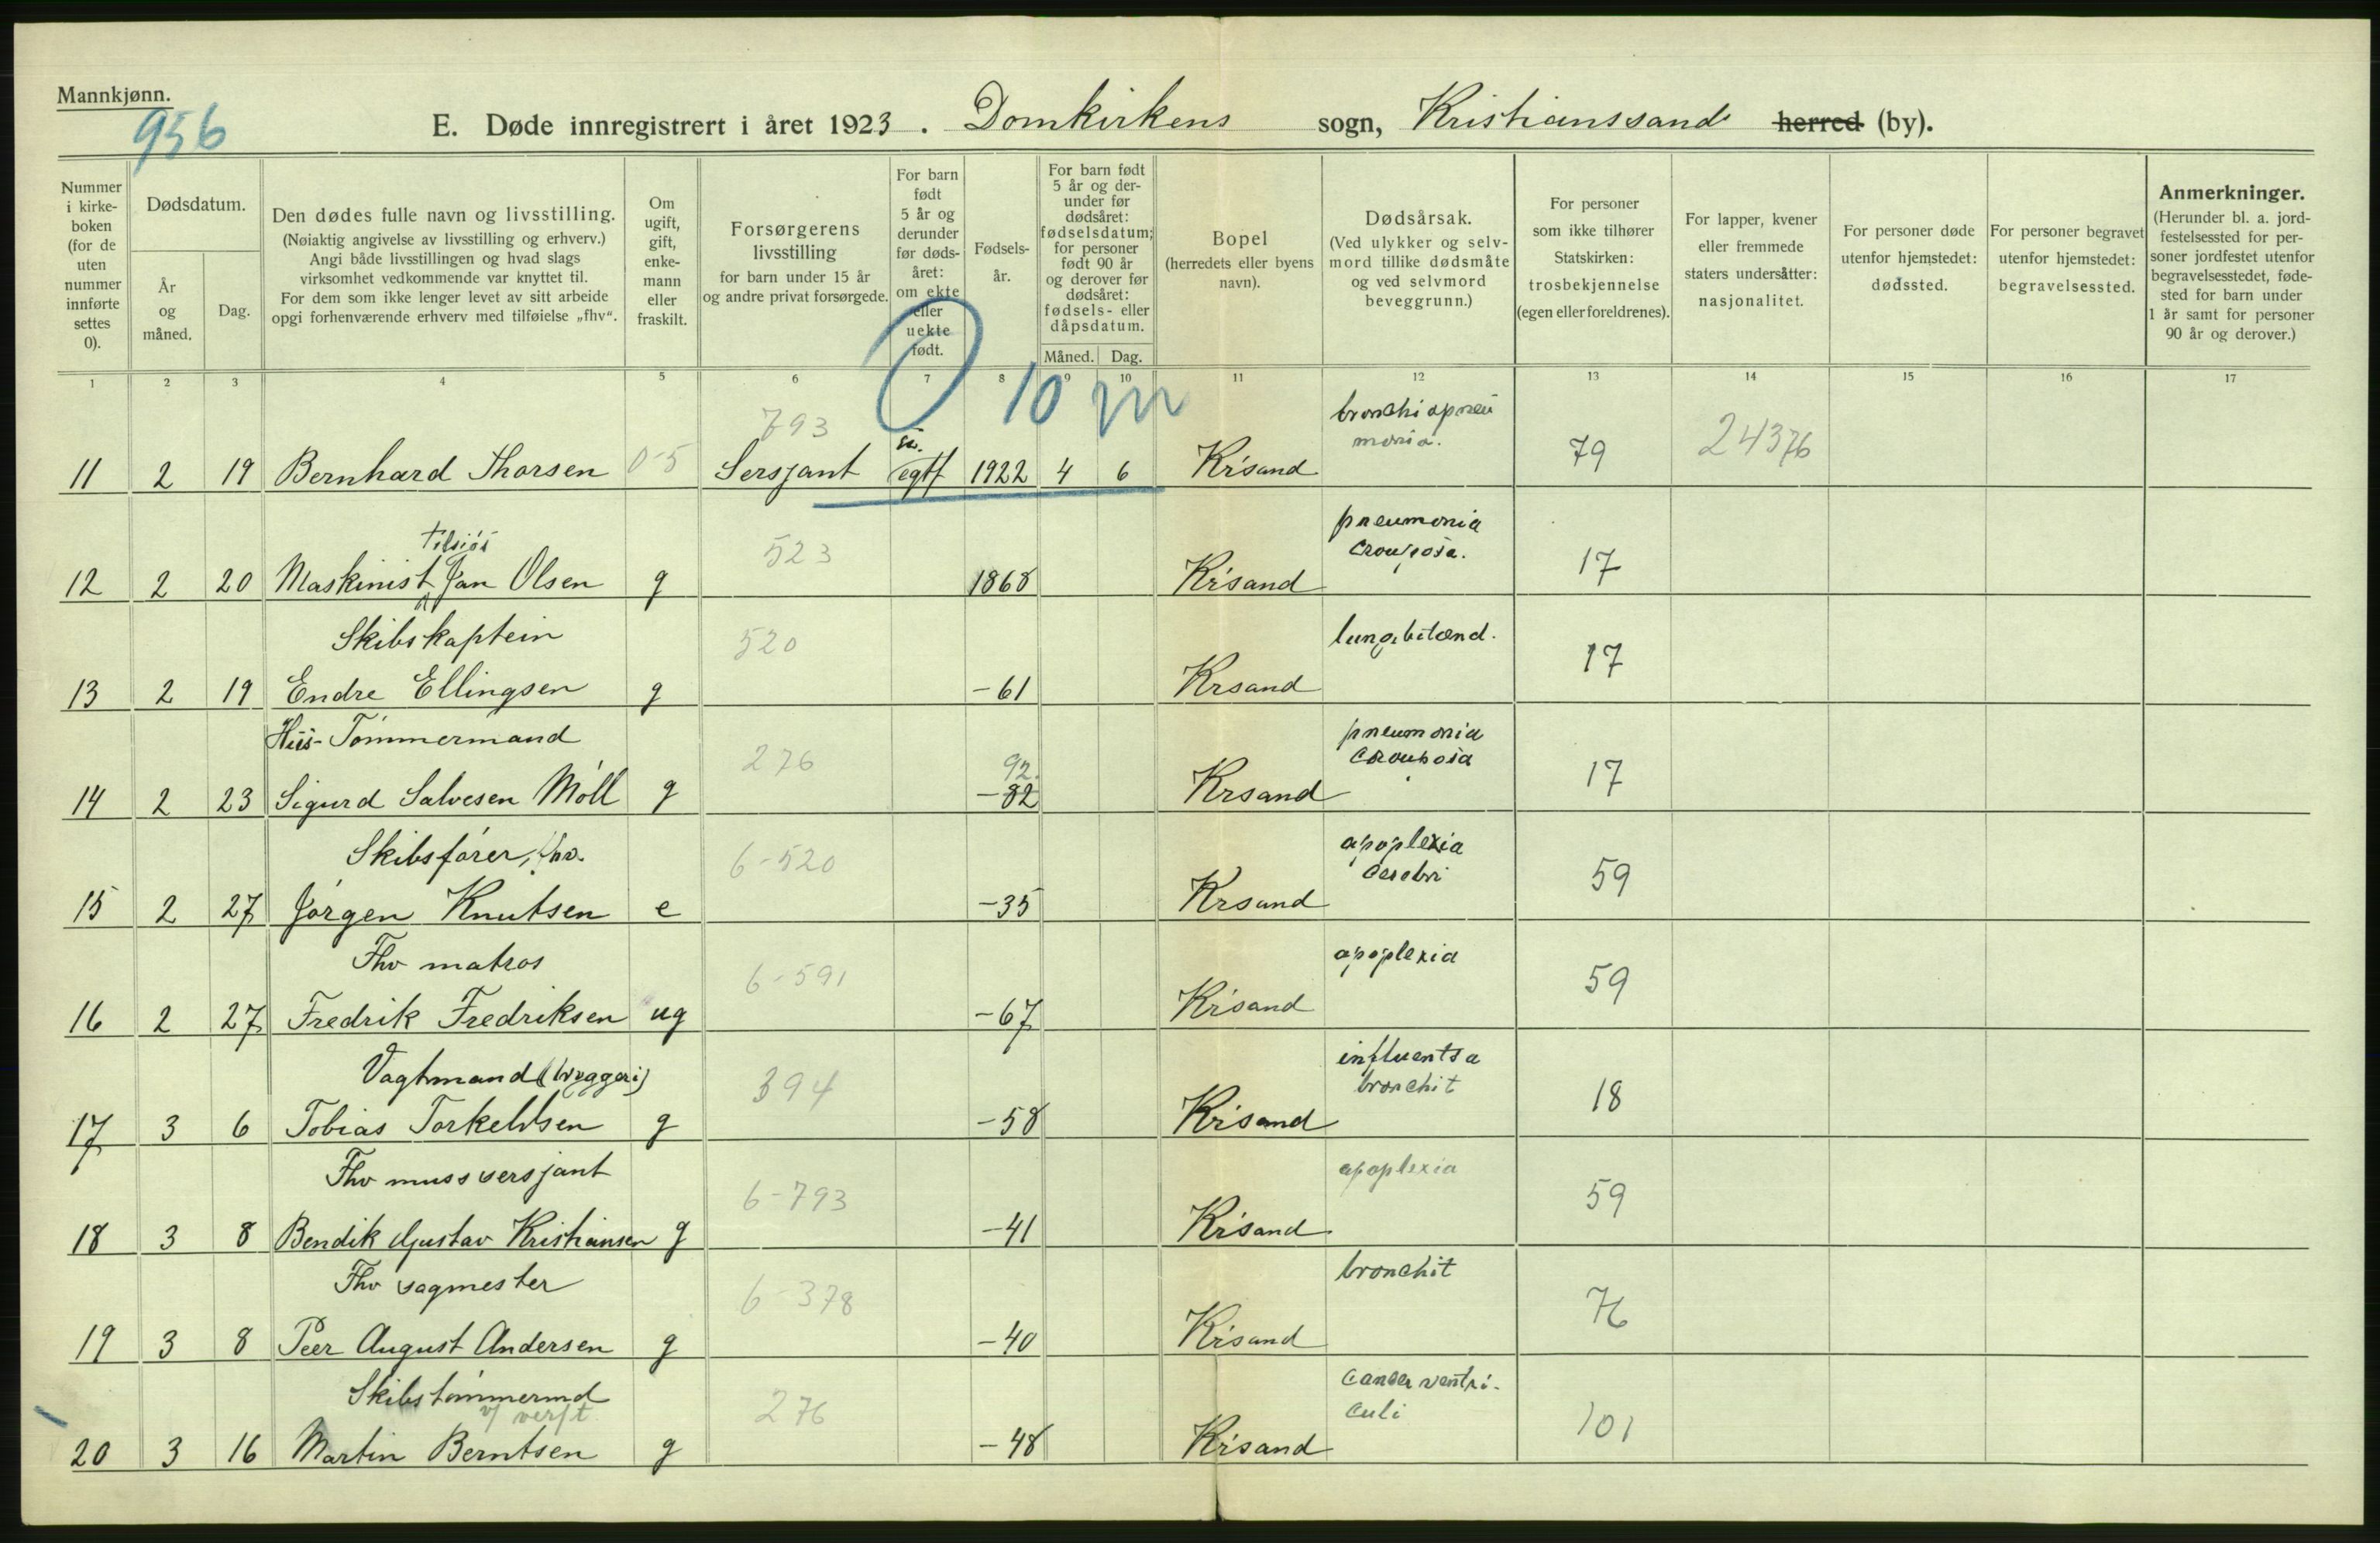 Mannkjønn.
956
E. Døde innregistrert i året 1923. Domkirkens sogn, Kristianssands herred (by).
Nummer i kirke-boken (for de uten nummer innførte settes 0).
Dødsdatum.
År og måned.
Dag.
Den dødes fulle navn og livsstilling.
(Nøiaktig angivelse av livsstilling og erhverv.)
Angi både livsstillingen og hvad slags
virksomhet vedkommende var knyttet til.
For dem som ikke lenger levet av sitt arbeide
opgi forhenværende erhverv med tilføielse „fhv“.
Om ugift, gift, enke-mann eller fraskilt.
Forsørgerens livsstilling
for barn under 15 år
og andre privat forsørgede.
For barn født 5 år og derunder før døds-året: om ekte eller uekte født.
Fødsels-år.
For barn født 5 år og der-under før dødsåret: fødselsdatum; for personer født 90 år og derover før dødsåret: fødsels- eller dåpsdatum.
Måned. Dag.
Bopel
(herredets eller byens navn).
Dødsårsak.
(Ved ulykker og selv-mord tillike dødsmåte og ved selvmord beveggrunn.)
For personer som ikke tilhører Statskirken: trosbekjennelse
(egen eller foreldrenes).
For lapper, kvener eller fremmede staters undersåtter: nasjonalitet.
For personer døde utenfor hjemstedet: dødssted.
For personer begravet utenfor hjemstedet: begravelsessted.
Anmerkninger.
(Herunder bl. a. jord-festelsessted for per-soner jordfestet utenfor begravelsesstedet, føde-sted for barn under 1 år samt for personer 90 år og derover.)
1 2 3 4 5 6 7 8 9 10 11 12 13 14 15 16 17
10 m
793 bronchiopneu
monia.
11 2 19 Bernhard Thorsen 0-5 Sersjant egtf 1922 4 6 Kr'sand 79 24376
tilsjøs 523 pneumonia
crouposa.
12 2 20 Maskinist Jan Olsen g 1868 Kr'sand 17
Skibskaptein 520 lungebetænd.
13 2 19 Endre Ellingsen g -61 Krsand 17
Hus-Tømmermand 276 92. pneumonia
crouposa
14 2 23 Sigurd Salvesen Möll g -82 Krsand 17
Skibsfører, fhv. 6-520 apoplexia
cerebri
15 2 27 Jørgen Knutsen e -35 Krsand 59
Fhv matros 6-591 apoplexia
16 2 27 Fredrik Fredriksen ug -67 Kr'sand 59
Vagtmand (bryggeri) 394 influentsa
bronchit
17 3 6 Tobias Torkeldsen g -58 Kr'sand 18
Fhv muss sersjant 6-793 apoplexia
18 3 8 Bendik Gustav Kristiansen g -41 Kr'sand 59
Fhv sagmester 6-378 bronchit
19 3 8 Peer August Andersen g -40 Kr'sand 76
Skibstømmermd
v/ verft 276 cancer ventri-
culi
20 3 16 Martin Berntsen g -48 Kr'sand 101